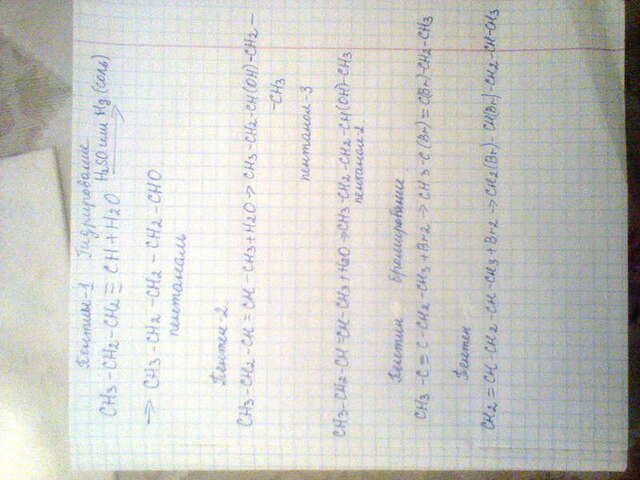 Пентин-1 Гидрирование
CH3-CH2-CH2≡CH+H2O H2SO или Hg(соль) →
→ CH3-CH2-CH2-CH2-CHO
пентаналь
Пентен-2.
CH3-CH2-CH=CH-CH3+H2O→CH3-CH2-CH(OH)-CH2-
-CH3
пентанол-3
CH3-CH2-CH=CH-CH3+H2O→CH3-CH2-CH2-CH(OH)-CH3
пентанол-2.
Пентин бромирование.
CH3-C≡C-CH2-CH3+Br2→CH3-C(Br)=C(Br)-CH2-CH3
Пентен
CH2=CH-CH2-CH-CH3+Br2→CH2(Br)-CH(Br)-CH2-CH-CH3